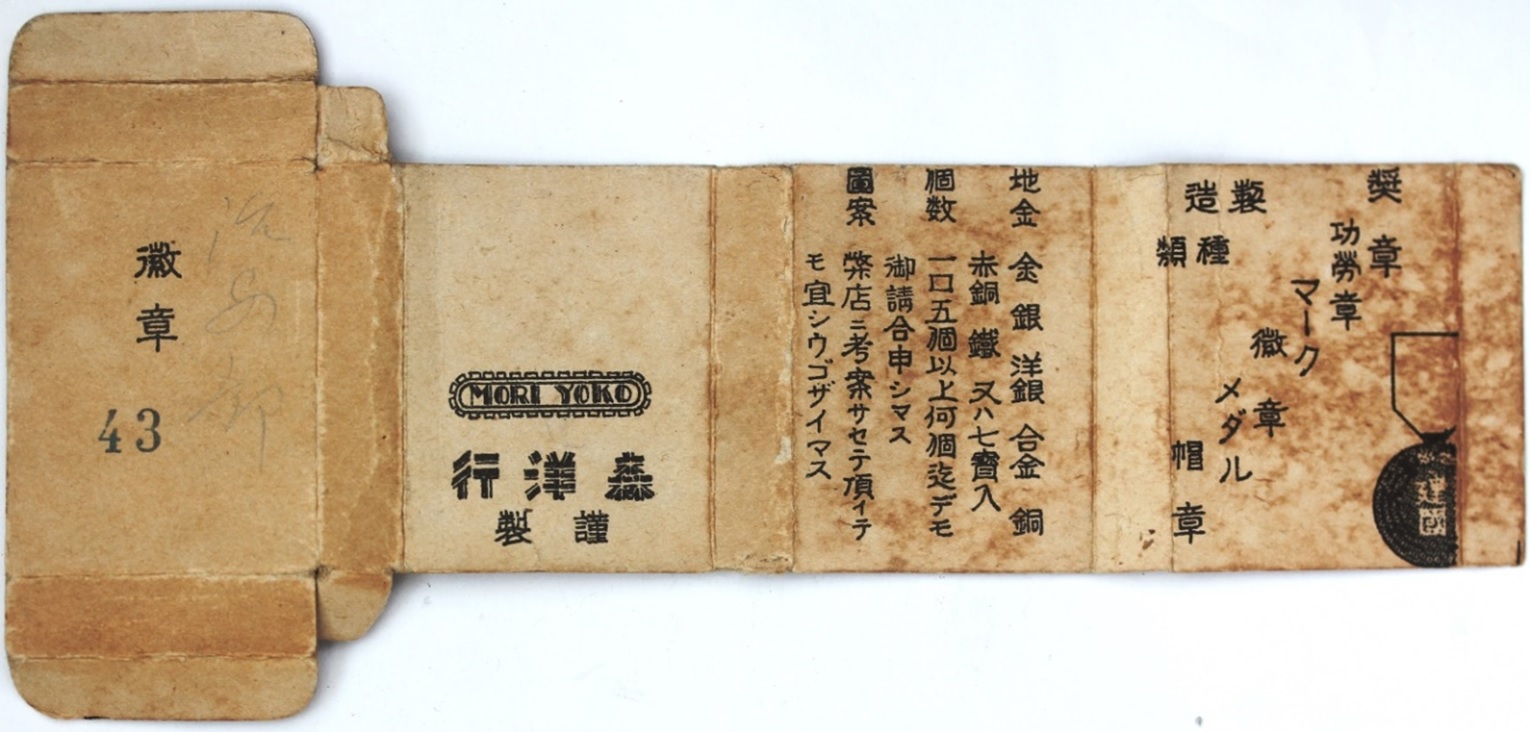 徽章
43
MORI YOKO
森洋行
謹製
地金 金 銀 洋銀 合金 銅
赤銅 鐵 又ハ七寳入
個数 一口五個以上何個迄デモ
御請合申シマス
圖案 弊店ニ考案サセテ頂イテ
モ宜シウゴザイマス
奬章
功勞章
マーク
徽章
メダル
帽章
製造
種類
建國